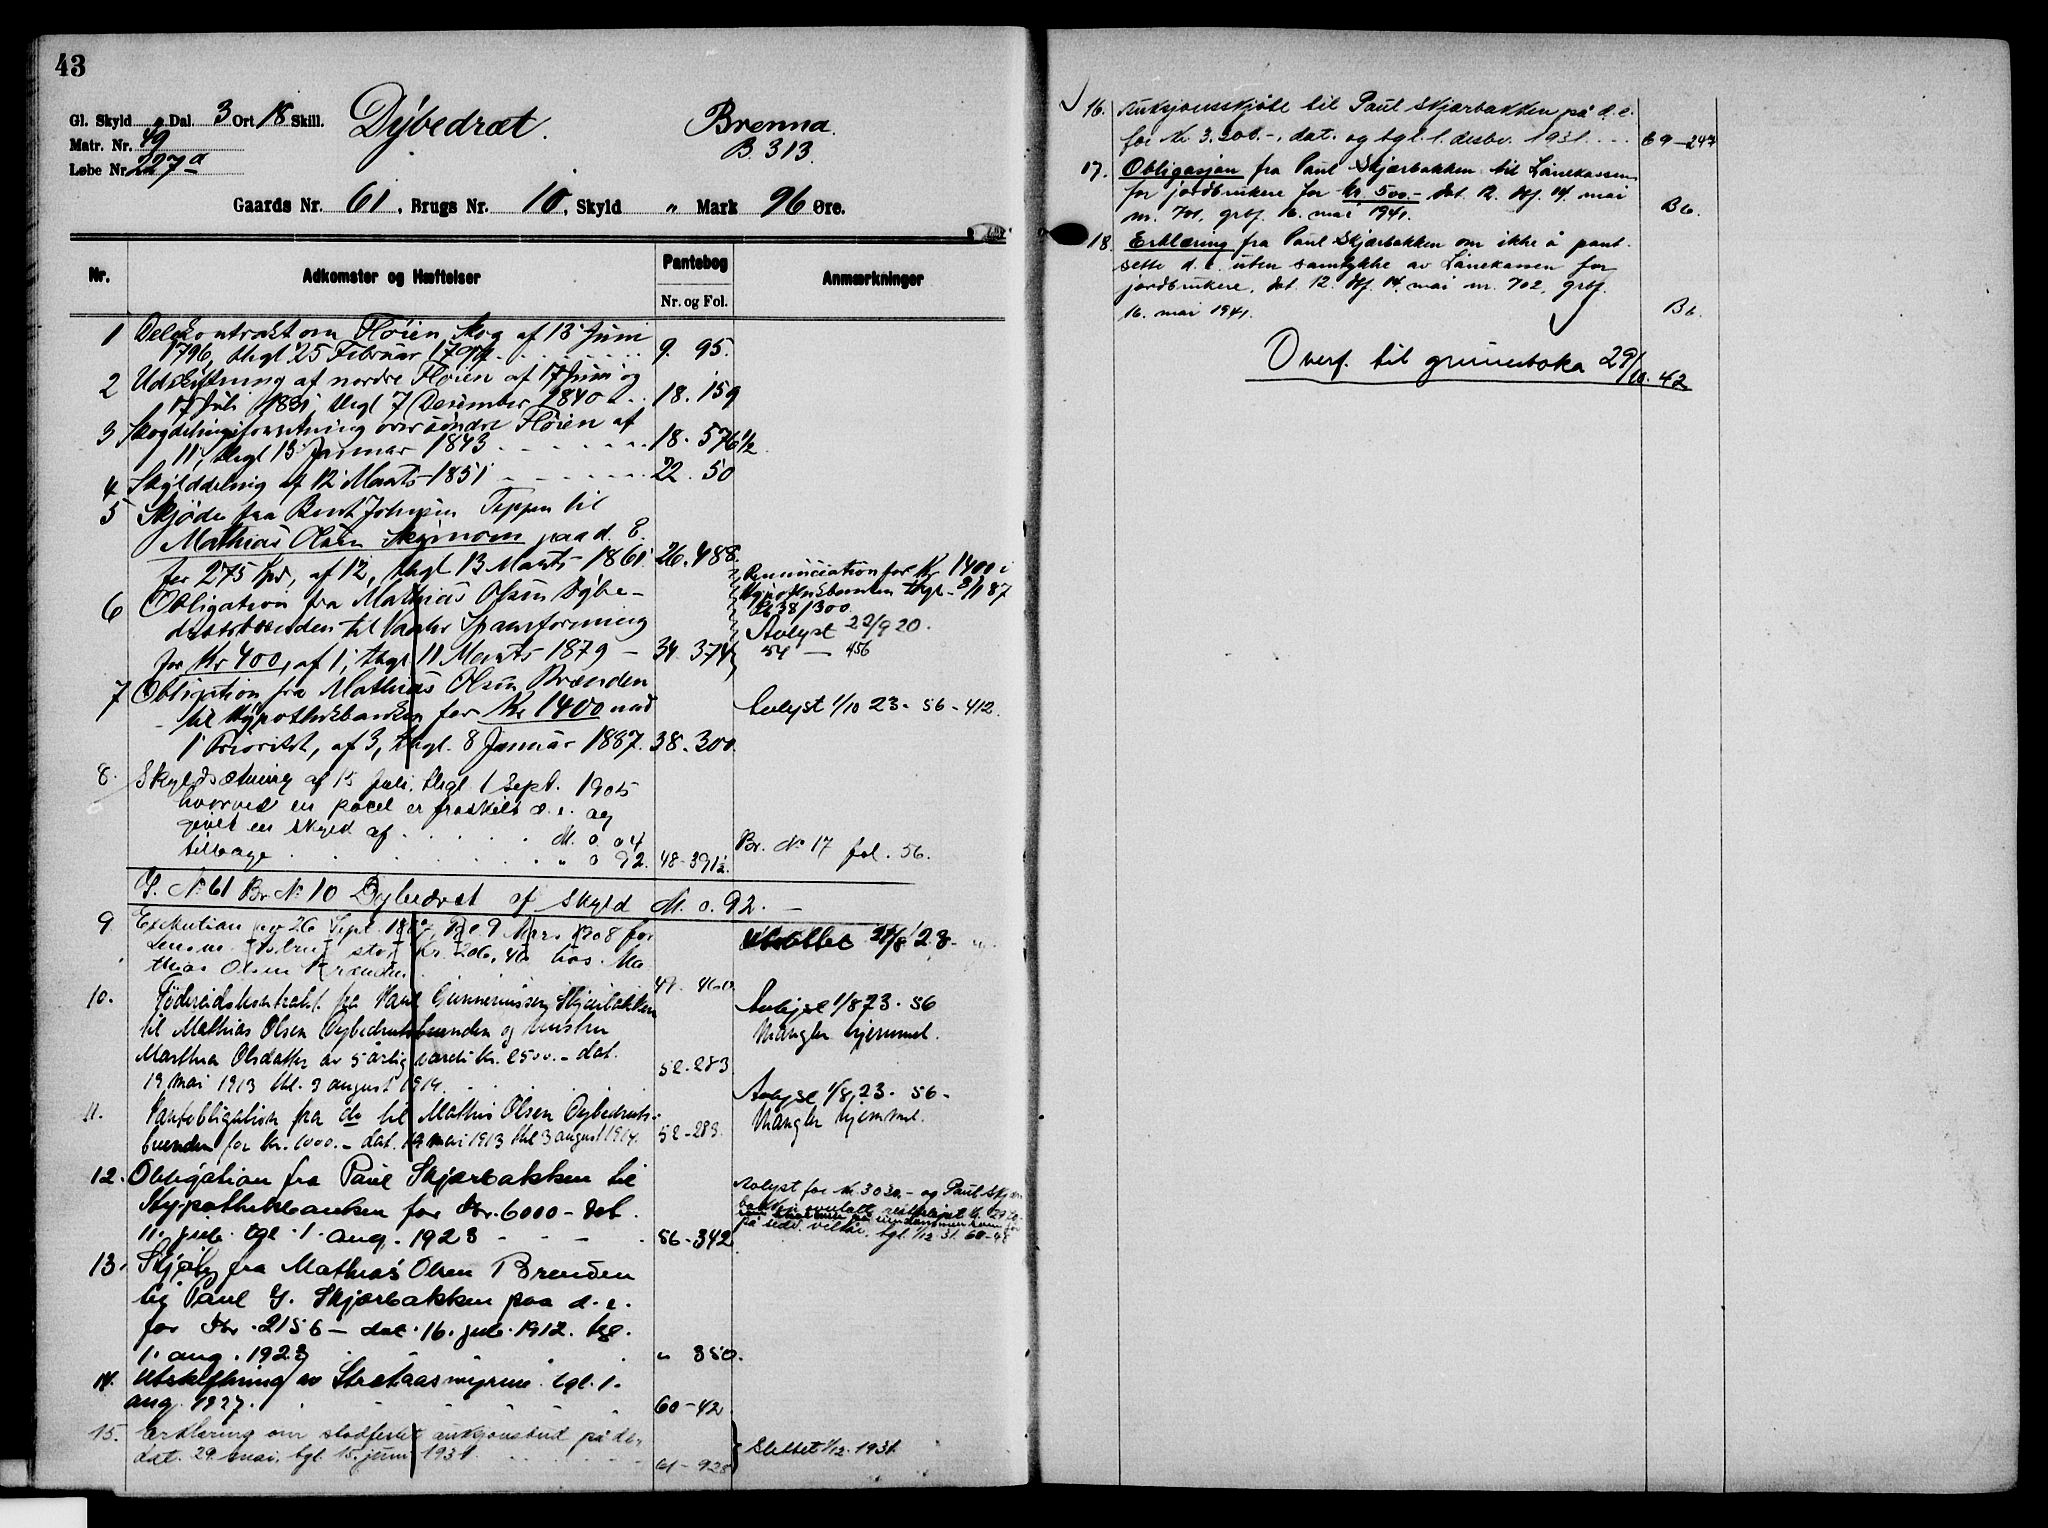 43
Gl. Skyld " Dal. 3 Ort 18 Skill.
Matr. Nr. 49
Løbe Nr. 227a
Dybedræt.
Brenna.
B. 313.
Gaards Nr. 61, Brugs Nr. 10, Skyld " Mark 96 Øre.
Nr. Adkomster og Hæftelser Pantebog Anmærkninger
Nr. og Fol.
1 Delekontrakt om Fløien Skog af 13 Juni
1796, thgl 25 Februar 9. 95.
2 Udskiftning af nordre Fløien af 17 Juni og
17 Juli 1831, thgl 7 December 1840 18. 159
3 Skogdelingsforretning over søndre Fløien af
11, thgl 13 Januar 1843 18. 576 1/2
4 Skylddeling af 12 Marts 1851 22. 50
5 Skjøde fra Bent Johnsen Teppen til
Mathias Olsen paa d. E.
for 275 Spd, af 12, thgl 13 Marts 1861 26. 488.
6 Obligation fra Mathias Olsen Dybe-
drætsbrænden til Spareforening
for Kr 400, af 1, thgl 11 Marts 1879 — 34. 374
Renunciation for Kr 1400 i
Hypothekbanken thgl 8/1 87
38/300.
Avlyst 22/9 20.
54 — 456
7 Obligation fra Mathias Olsen Brænden
til Hypothekbanken for Kr 1400 mod
1 Prioritet, af 3, thgl. 8 Januar 1887. 38. 300.
Avlyst 1/10 23. 56 - 412.
8. Skyldsætning af 15 Juli, thgl 1 Sept. 1905
hvorved en parcel er fraskilt d. e. og
givet en skyld af M. 0. 04
tilbage " 0 92. 48 - 391 1/2.
Br. No 17 fol. 56.
G. No 61 Br. No 10 Dybedræt af skyld M. 0. 92. —
9 Exekution 26 Sept. 9 Mars 1908 for
stor Kr. 206,40 hos Ma-
thias Olsen Brænden
Utslettet 28
10. Føderaadskontrakt fra Paul Gunneriussen Skjærbakken
til Mathias Olsen Dybedrætsbrænden og hustru
Marthea Olsdatter av 5 årlig værdi kr. 2500.- dat.
19 mai 1913 thl. 3 august 1914. 52 - 283
Avlyst 1/8 23. 56
Mangler hjemmel.
11. Pantobligation fra do til Mathis Olsen Dybedræts-
brænden for kr. 1000.- dat. 19 mai 1913 thl 3 august 1914. 52 - 283.
Avlyst 1/8 23. 56 -
Mangler hjemmel.
12. Obligation fra Paul Skjærbakken til
Hypothekbanken for Kr. 6000 - dat.
11. juli. tgl. 1. aug. 1923 - - - 56 - 342
Avlyst for kr. 3030.- og Paul Skjær-
bakken
på sedv. vilkår. tgl. 1/12 31. 60-48
13. Skjøte fra Mathias Olsen Brenden
til Paul G. Skjærbakken paa d. e.
for Kr. 2156 - dat. 16. juli. 1912. tgl.
1. aug. 1923 " 350.
14. Utskiftning av Strætaasmyrene. tgl. 1.
aug. 1927. 60 - 42
15. Erklæring om stadfestet auksjonsbud på de,
dat. 29. mai, tgl. 15. juni 1931. 61 - 928
Slettet 1/12. 1931.
16. Auksjonsskjøte til Paul Skjærbakken på d. e.
for kr. 3.300.-, dat. og tgl. 1. desbr. 1931. 69 - 247
17. Obligasjon fra Paul Skjærbakken til Lånekassen
for jordbrukere for kr. 500.- dat. 12. dgf. 14. mai
nr. 701, grbf. 16. mai 1941. B 6.
18. Erklæring fra Paul Skjærbakken om ikke å pant-
sette d. e. uten samtykke av Lånekassen for
jordbrukere, dat. 12. dgf. 14. mai nr. 702, grbf.
16. mai 1941. B 6.
Overf. til grunnboka 29/10. 42